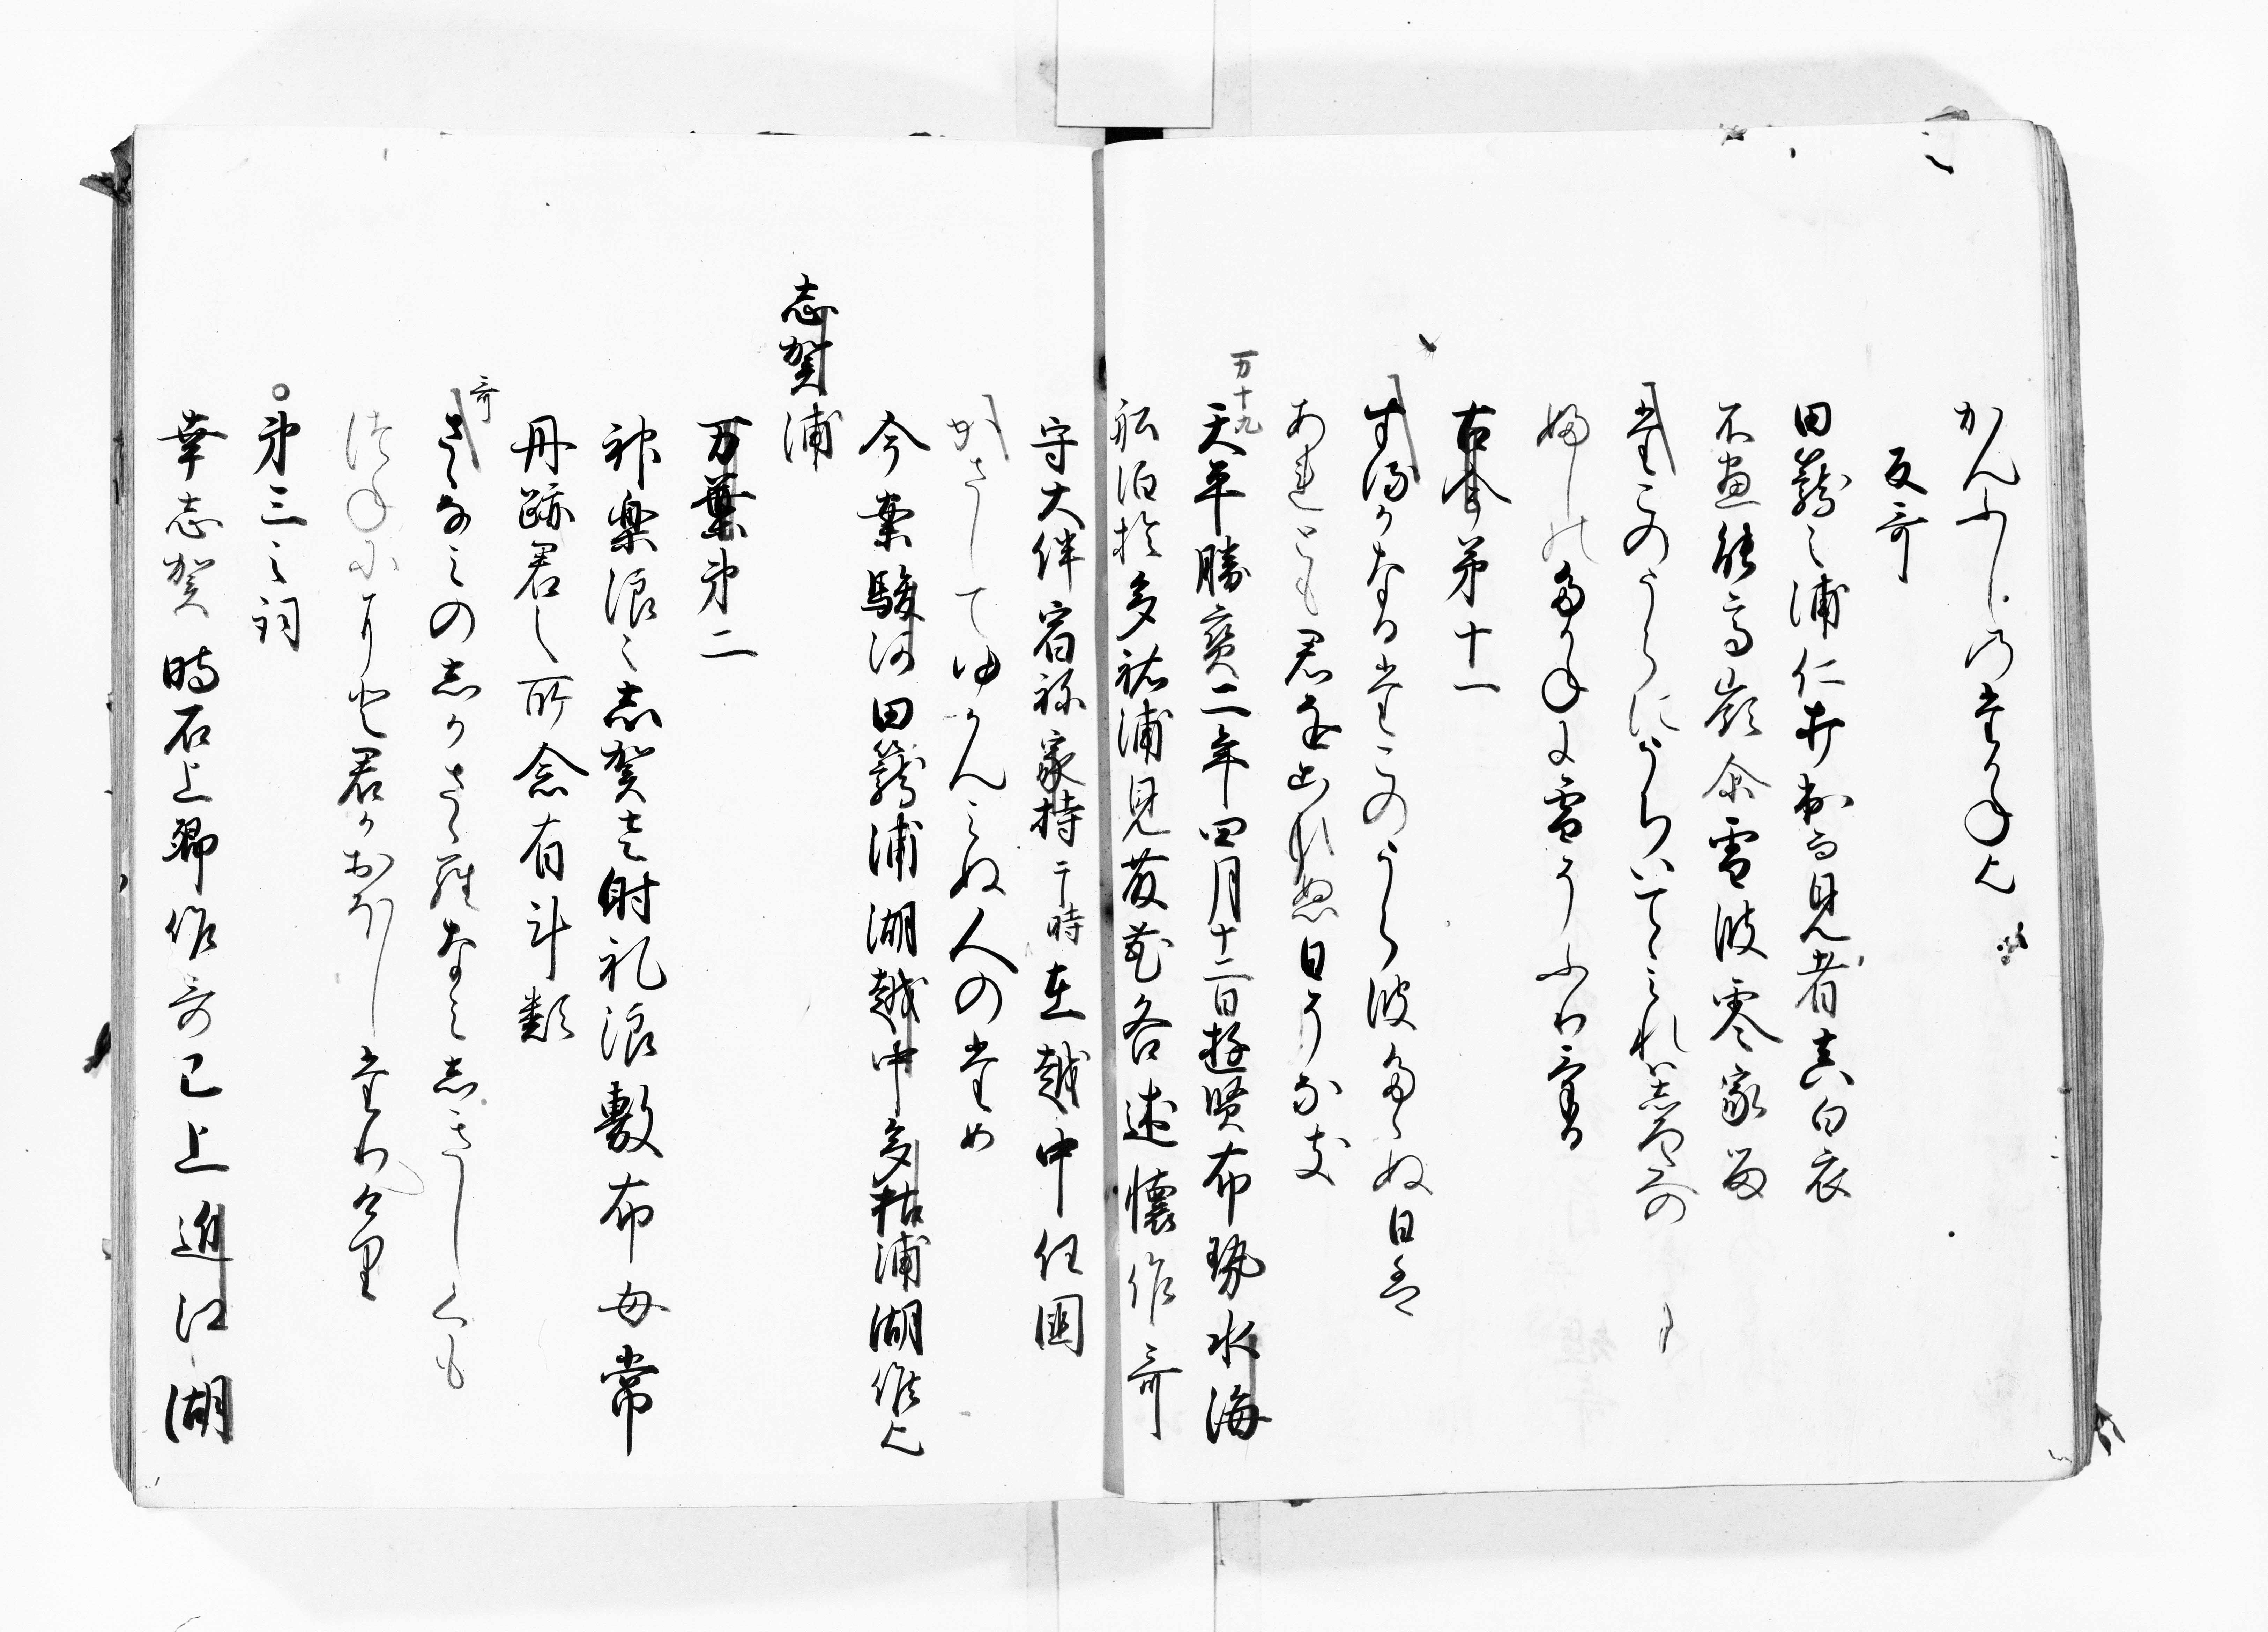 かんふしのたかねん
反哥
田籠之浦仁打出而見者真白衣
不盡能高嶺余雪波零家留
たこのうらにうちいてゝみれはしろたへの
ふしのたかねに雪そふりける
古今第十一
するかなるたこのうら波たゝぬ日はあ
あれとも君を恋ひぬ日そなき
万十九
天平勝寳二年四月十二日遊覧布勢水海
舩泊於多祜浦見藤花各述懐作哥
守大伴宿祢家持于時在越中任國
かさしてゆかんみぬ人のため
今案駿河田籠浦湖越中多祜浦湖候也
志賀浦
万葉第二
神楽浪之志賀左射礼浪敷布母常
丹跡君之所念有計類
哥
さゝなみの志かさゝれなみ志きしくも
つねにと君かおほしたりける
第三之詞
幸志賀時石上卿作哥已上近江湖